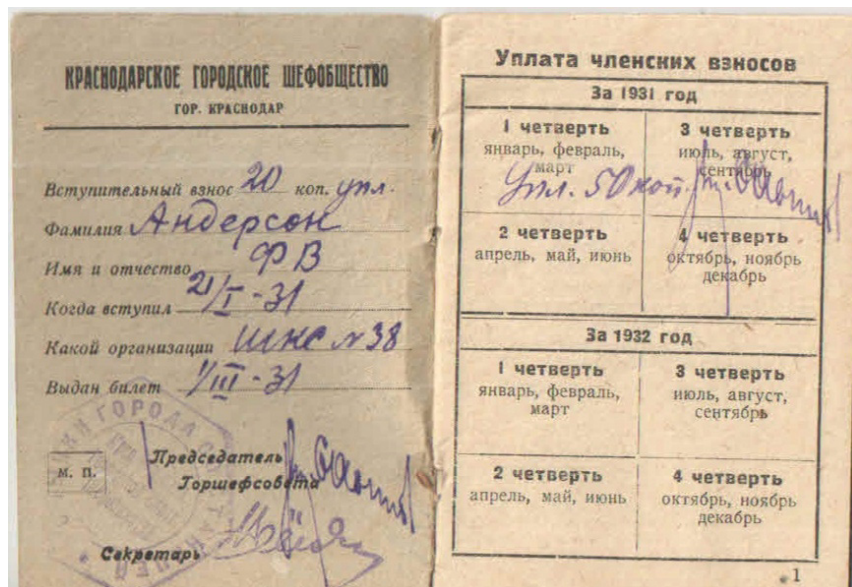 КРАСНОДАРСКОЕ ГОРОДСКОЕ ШЕФОБЩЕСТВО
ГОР. КРАСНОДАР
Вступительный взнос 20 коп. упл.
Фамилия Андерсон
Имя и отчество ФВ
Когда вступил 21/I-31
Какой организации ШКС № 38
Выдан билет 1/III-31
М. П.
Председатель
Горшефсовета
Секретарь
Уплата членских взносов
За 1931 год
1 четверть
январь, февраль,
март
3 четверть
июль, август,
сентябрь
Упл. 50 коп.
2 четверть
апрель, май, июнь
4 четверть
октябрь, ноябрь
декабрь
За 1932 год
1 четверть
январь, февраль,
март
3 четверть
июль, август,
сентябрь
2 четверть
апрель, май, июнь
4 четверть
октябрь, ноябрь
декабрь
1